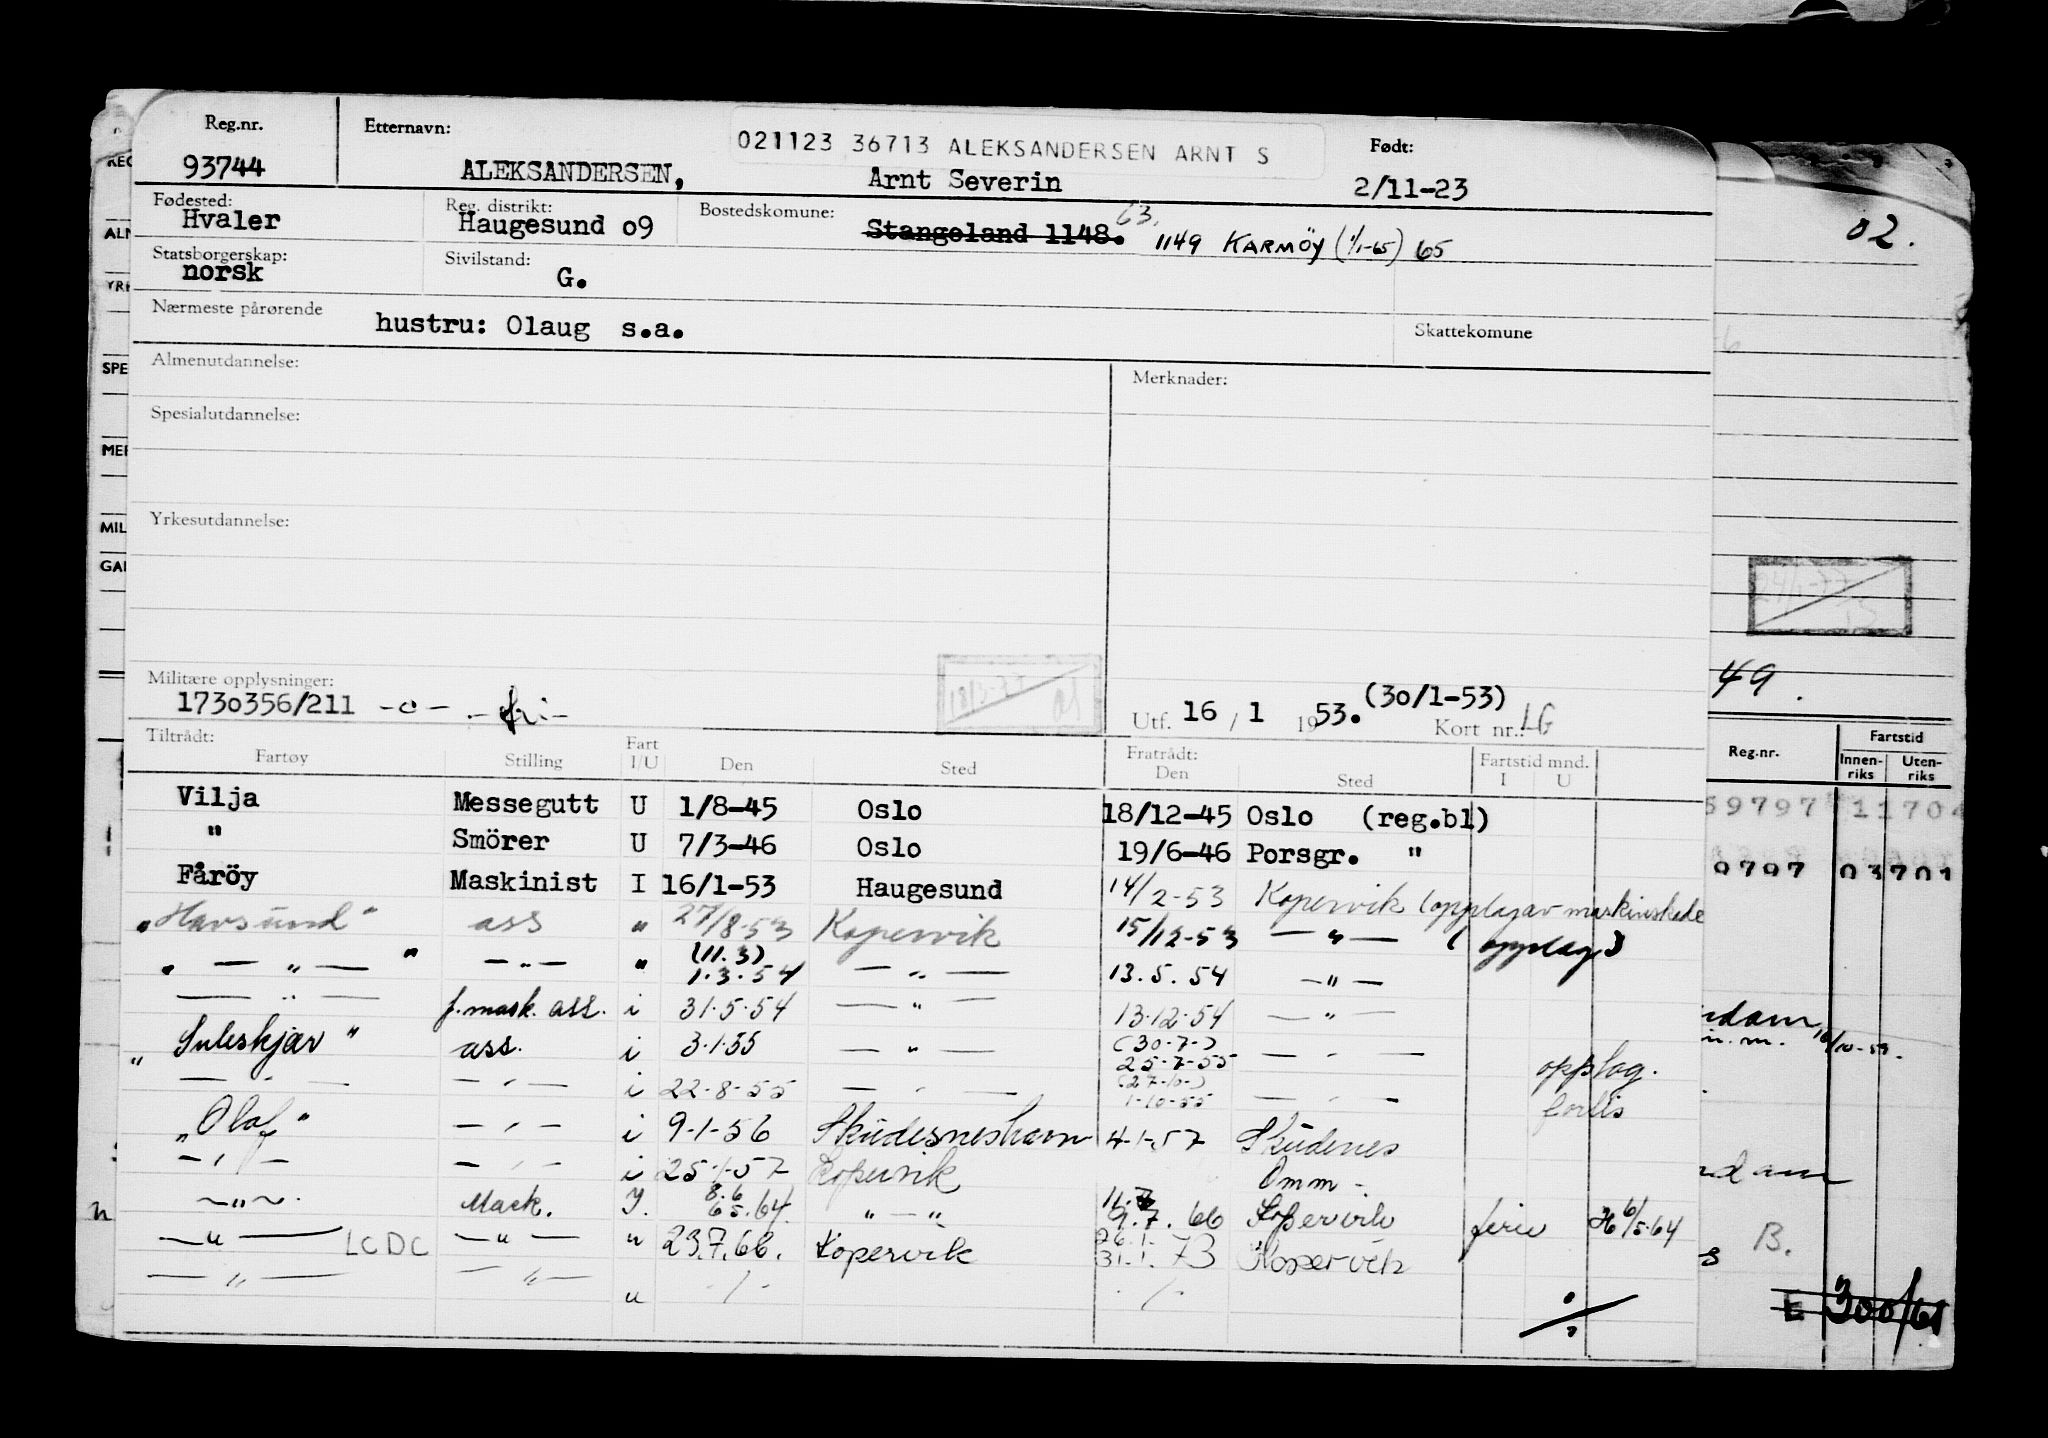 Reg.nr. Etternavn: 021123 36713 ALEKSANDERSEN ARNT S Født:
93744 ALEKSANDERSEN, Arnt Severin 2/11-23
Fødested: Reg. distrikt: Bostedskomune: 63.
Hvaler Haugesund 09 Stangeland 1148. 1149 KARMÖY (1/1-65) 65
Statsborgerskap: Sivilstand:
norsk G.
Nærmeste pårørende hustru: Olaug s.a. Skattekomune
Almenutdannelse: Merknader:
Spesialutdannelse:
Yrkesutdannelse:
Militære opplysninger:
1730356/211 -o- -fri-
Utf. 16 / 1 1953. (30/1-53) Kort nr.: LG
Tiltrådt: Fratrådt:
Fartøy Stilling Fart I/U Den Sted Den Sted Fartstid mnd. I U
Vilja Messegutt U 1/8-45 Oslo 18/12-45 Oslo (reg.bl)
" Smörer U 7/3-46 Oslo 19/6-46 Porsgr. "
Fåröy Maskinist I 16/1-53 Haugesund 14/2-53 Kopervik (opplag av maskinskade
"Havsund" ass " 27/8-53 Kopervik 15/12-53 — " — (opplag)
" — " — " — " — " (11.3) 1.3.54 — " — 13.5.54 — " —
— " — f.mask. ass. i 31.5.54 — " — 13.12.54 — " —
"Suleskjær" ass. i 3.1.55 — " — (30-7-) 25-7-55 — " — opplag.
— " — — " — i 22-8-55 — " — (27-10-) 1-10-55 — " — forlis
"Olaf" — " — i 9-1-56 Skudesneshavn 4-1-57 Skudenes
— " — — " — i 25-1-57 Kopervik Omm -.
— " — Mask. 8.6 65.64. " — " 11.7 9.7.66 Kopervik ferie H 6/5-64
— " — LCDC — " — " 23.7.66. Kopervik 26.1. 31.1.73 Kopervik
— " — — " — " -/- -/-
02.
49.
Reg.nr. Fartstid
Innenriks Utenriks
59797 11704
9797 03701
B.
E 300/61